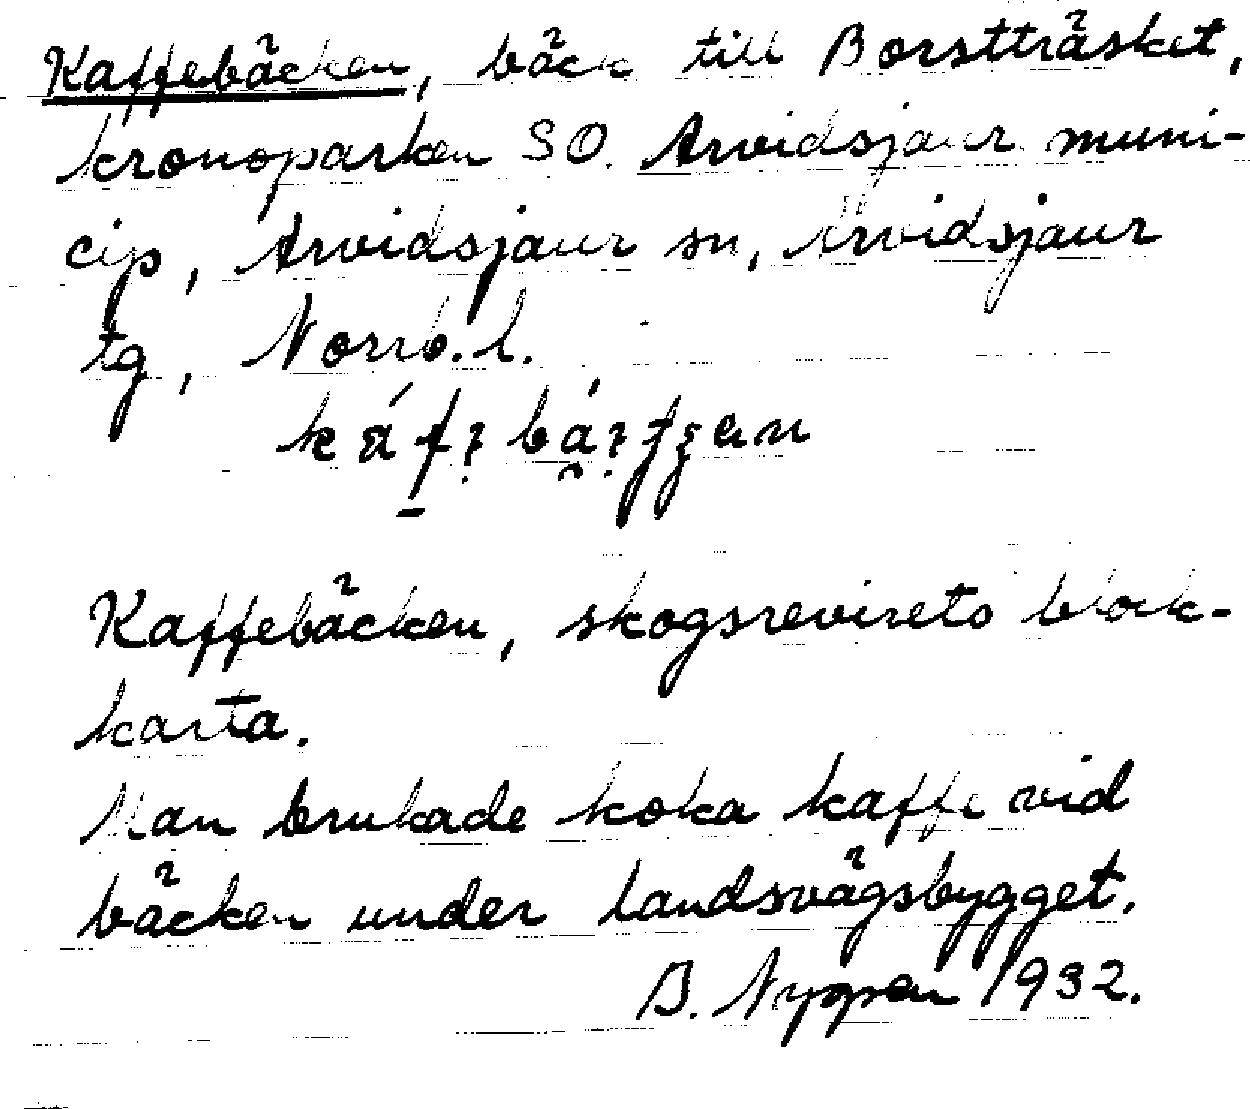 Kaffebäcken, bäck till Borstträsket,
kronoparken SO. Arvidsjaur muni-
cip, Arvidsjaur sn, Arvidsjaur
tg, Norrb. l.
Kaffebäcken, skogsrevirets block-
karta.
Man brukade koka kaffe vid
bäcken under landsvägsbygget.
B. 1932.